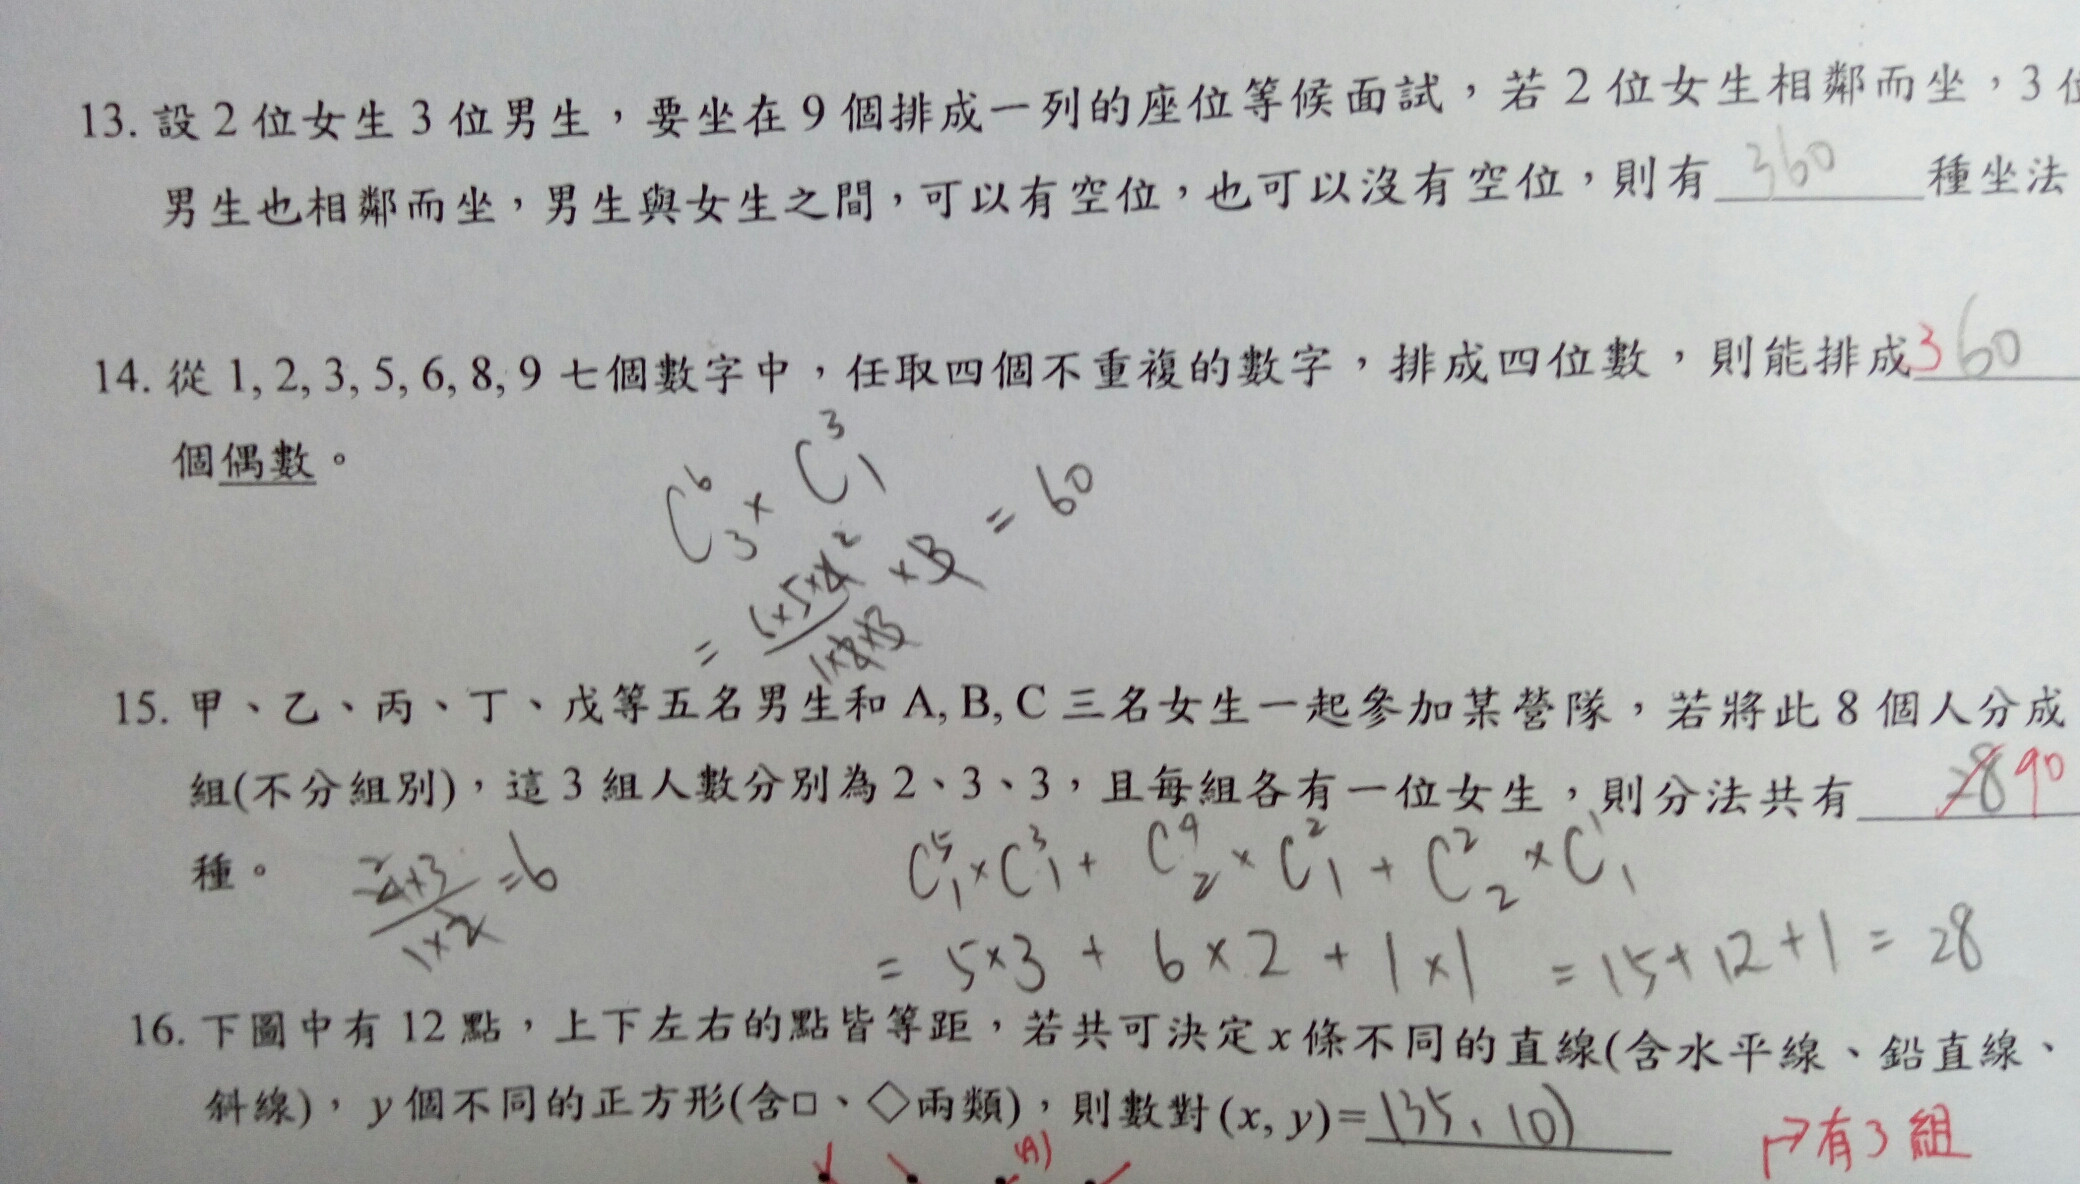 13. 設 2 位女生 3 位男生，要坐在 9 個排成一列的座位等候面試，若 2 位女生相鄰而坐，3 位
男生也相鄰而坐，男生與女生之間，可以有空位，也可以沒有空位，則有 360 種坐法
14. 從 1, 2, 3, 5, 6, 8, 9 七個數字中，任取四個不重複的數字，排成四位數，則能排成 360
個偶數。
C⁶₃ × C³₁
= 6×5×4² / 1×2×3 × 3 = 60
15. 甲、乙、丙、丁、戊等五名男生和 A, B, C 三名女生一起參加某營隊，若將此 8 個人分成
組(不分組別)，這 3 組人數分別為 2、3、3，且每組各有一位女生，則分法共有 28 90
種。
²4×3 / 1×2 = 6
C⁵₁ × C³₁ + C⁴₂ × C²₁ + C²₂ × C¹₁
= 5×3 + 6×2 + 1×1 = 15+12+1 = 28
16. 下圖中有 12 點，上下左右的點皆等距，若共可決定 x 條不同的直線(含水平線、鉛直線、
斜線)，y 個不同的正方形(含□、◇兩類)，則數對 (x, y)= (35, 10)
(A)
↱有3組